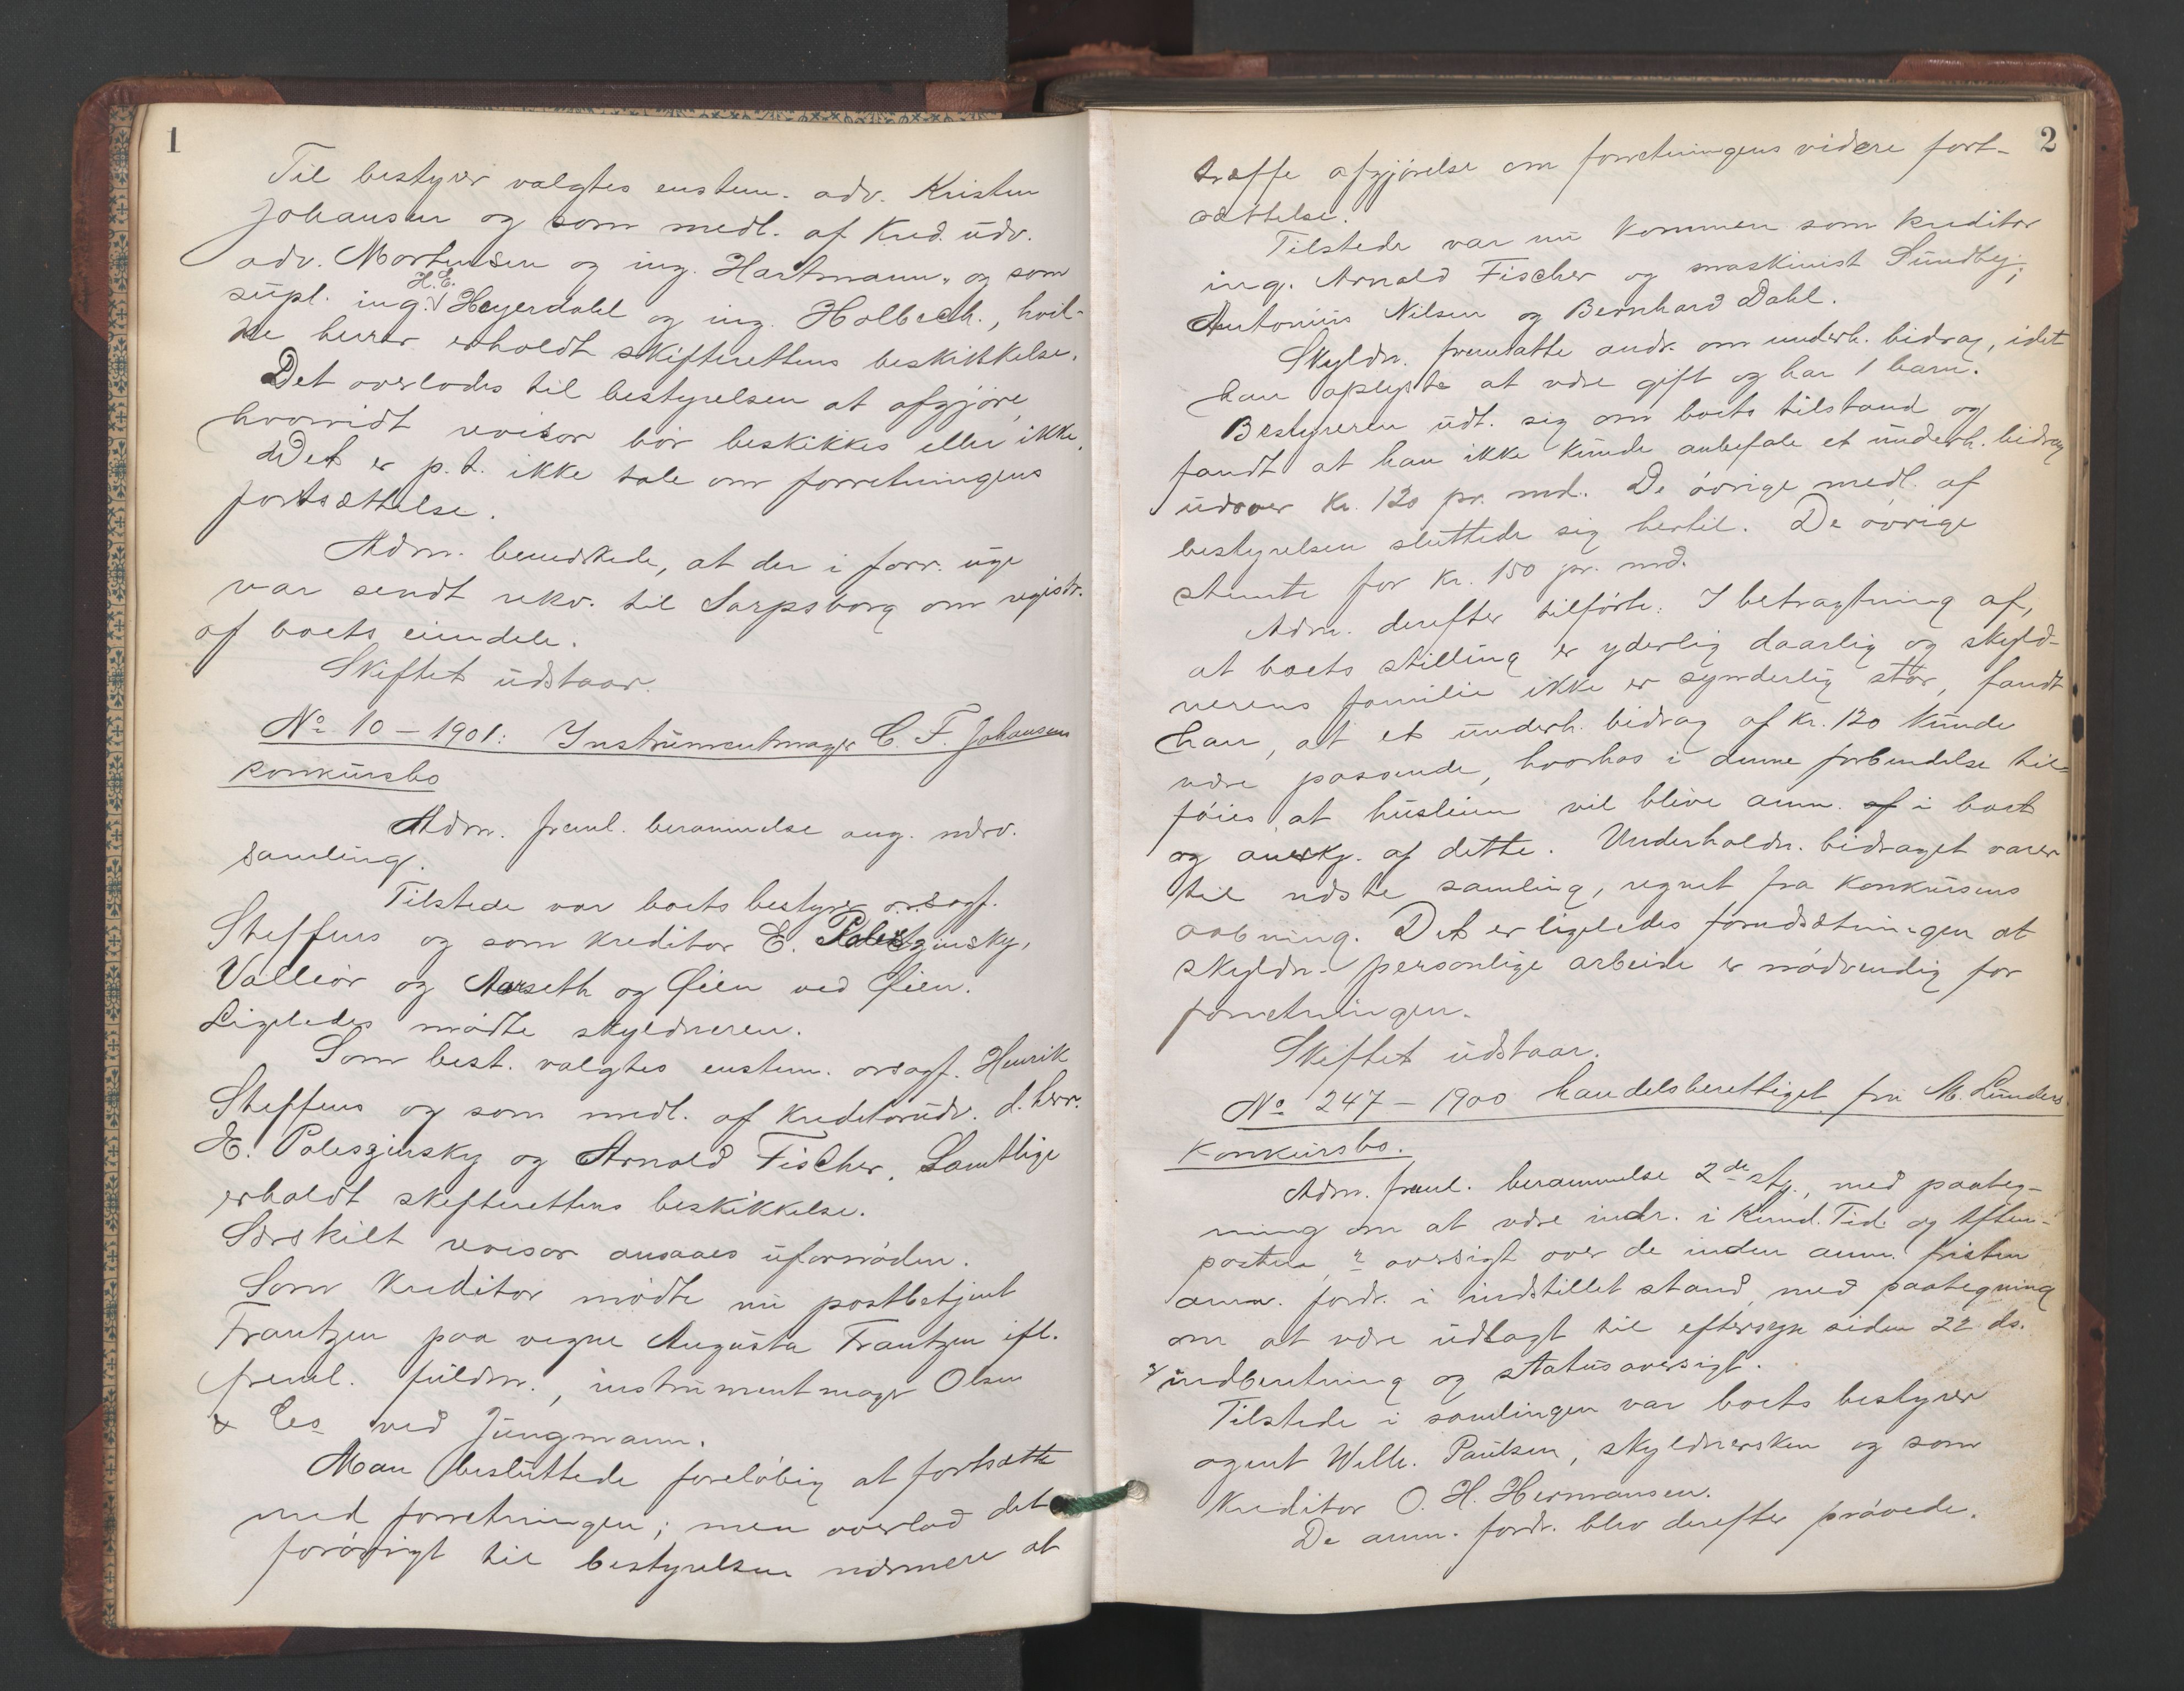 1
Til bestyrer valgtes enstem. adv. Kristen
Johansen og som medl. af Kred. udv.
adv. Mortensen og ing. Hartmann, og som
supl. ing. H.E. Heyerdahl og ing. Holbech., hvil-
ke herrer erholdt skifterettens beskikkelse.
Det overlodes til bestyrelsen at afgjöre,
hvorvidt revisor bör beskikkes eller ikke.
Det er p.t. ikke tale om forretningens
fortsættelse.
Adm. bemærkede, at der i forr. uge
var sendt rekv. til Sarpsborg om registr.
af boets eiendele.
Skiftet udstaar.
No 10 – 1901: Instrumentmager C. F. Johansens
konkursbo
Adm. freml. berammelse ang. nærv.
samling.
Tilstede var boets bestyrer o.r.sagf.
Steffens og som kreditor E. Poleszinsky,
Valleör og Aarseth og Øien ved Øien.
Ligeledes mödte skyldneren.
Som best. valgtes enstem. orsagf. Henrik
Steffens og som medl. af kreditorudv. d. herr.
E. Poleszinsky og Arnold Fischer. Samtlige
erholdt skifterettens beskikkelse.
Særskilt revisor ansaaes ufornöden.
Som kreditor mödte nu postbetjent
Frantzen paa vegne Augusta Frantzen ifl.
freml. fuldm., instrumentmager Olsen
& Co ved Jüngmann.
Man besluttede forelöbig at fortsætte
med forretningen; men overlod det
forövrigt til bestyrelsen nærmere at
2
træffe afgjörelse om forretningens videre fort-
sættelse.
Tilstede var nu kommen som kreditor
ing. Arnold Fischer og maskinist Sundby,
Antonius Nilsen og Bernhard Dahl.
Skyldn. fremsatte andr. om underh. bidrag, idet
han oplyste at være gift og har 1 barn.
Bestyreren udt. sig om boets tilstand og
fandt at han ikke kunde anbefale et underh. bidrag
udover Kr. 120 pr. md. De övrige medl. af
bestyrelsen sluttede sig hertil. De övrige
stemte for Kr. 150 pr. md.
Adm. derefter tilförte: I betragtning af,
at boets stilling er yderlig daarlig og skyld-
nerens familie ikke er synderlig stor, fandt
han, at et underh. bidrag af Kr. 120 kunde
være passende, hvorhos i denne forbindelse til-
föies, at husleien vil blive anm. af i boet
og auesky. af dette. Underholdn. bidraget varer
til næste samling, regnet fra konkursens
aabning. Det er ligeledes forudsætningen at
skyldn. personlige arbeide er nödvendig for
forretningen.
Skiftet udstaar.
No 247 – 1900 handelsberettiget fru M. Lunders
konkursbo.
Adm. freml. berammelse 2de sty., med paateg-
ning om at være indr. i Kund. Tid. og Aften-
posten, 2 oversigt over de inden anm. fristen
anm. fordr. i indstillet stand, med paategning
om at være udlagt til eftersyn siden 22 ds.
3/ indberetning og statusoversigt.
Tilstede i samlingen var boets bestyrer
agent Wilh. Paulsen, skyldnersken og som
kreditor O. H. Hermansen.
De anm. fordr. blev derefter prövede.